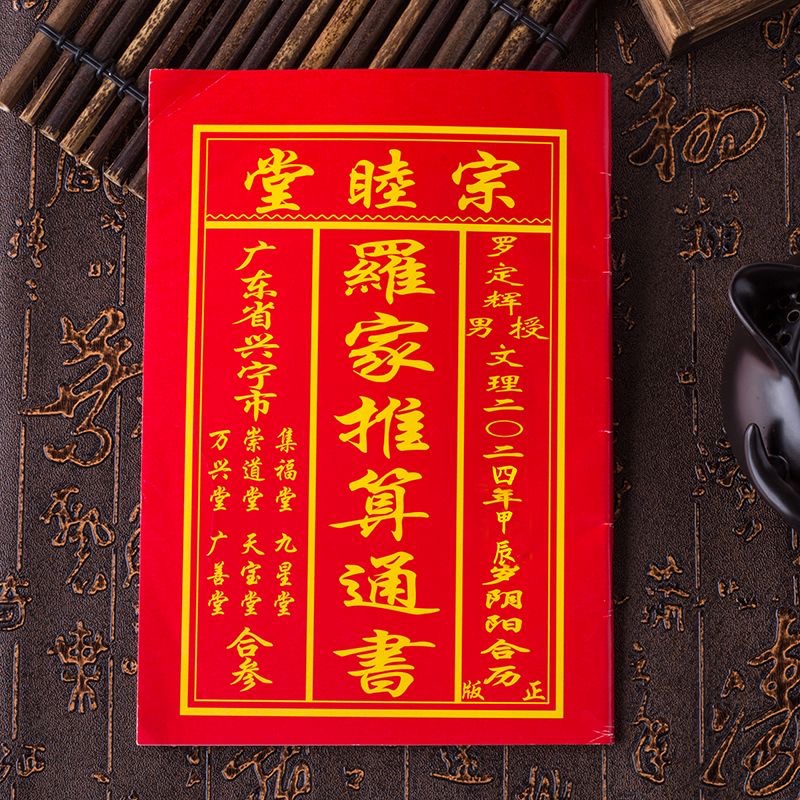 宗睦堂
罗定辉
授男
文理二〇二四年甲辰岁阴阳合历
正版
羅家推算通書
广东省兴宁市
集福堂 九星堂
崇道堂 天宝堂
万兴堂 广善堂
合参